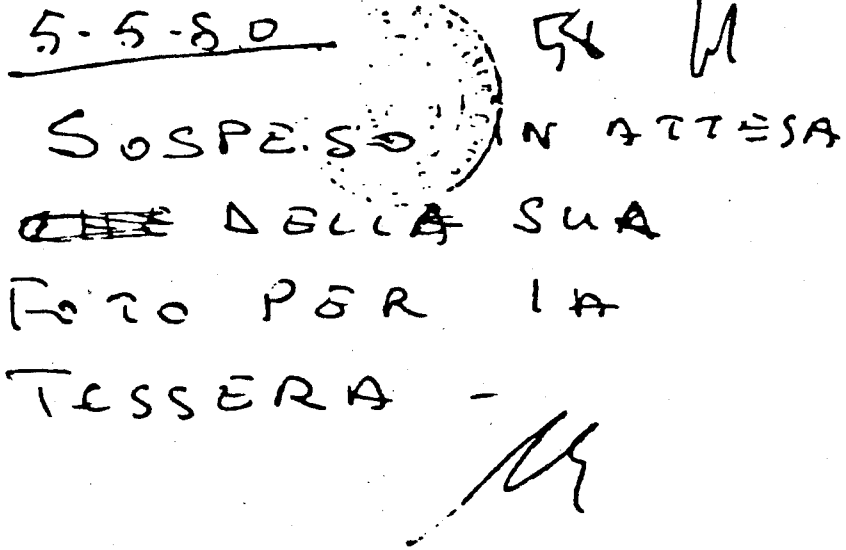 5-5-80
SOSPESO IN ATTESA
DELLA SUA
FOTO PER LA
TESSERA -